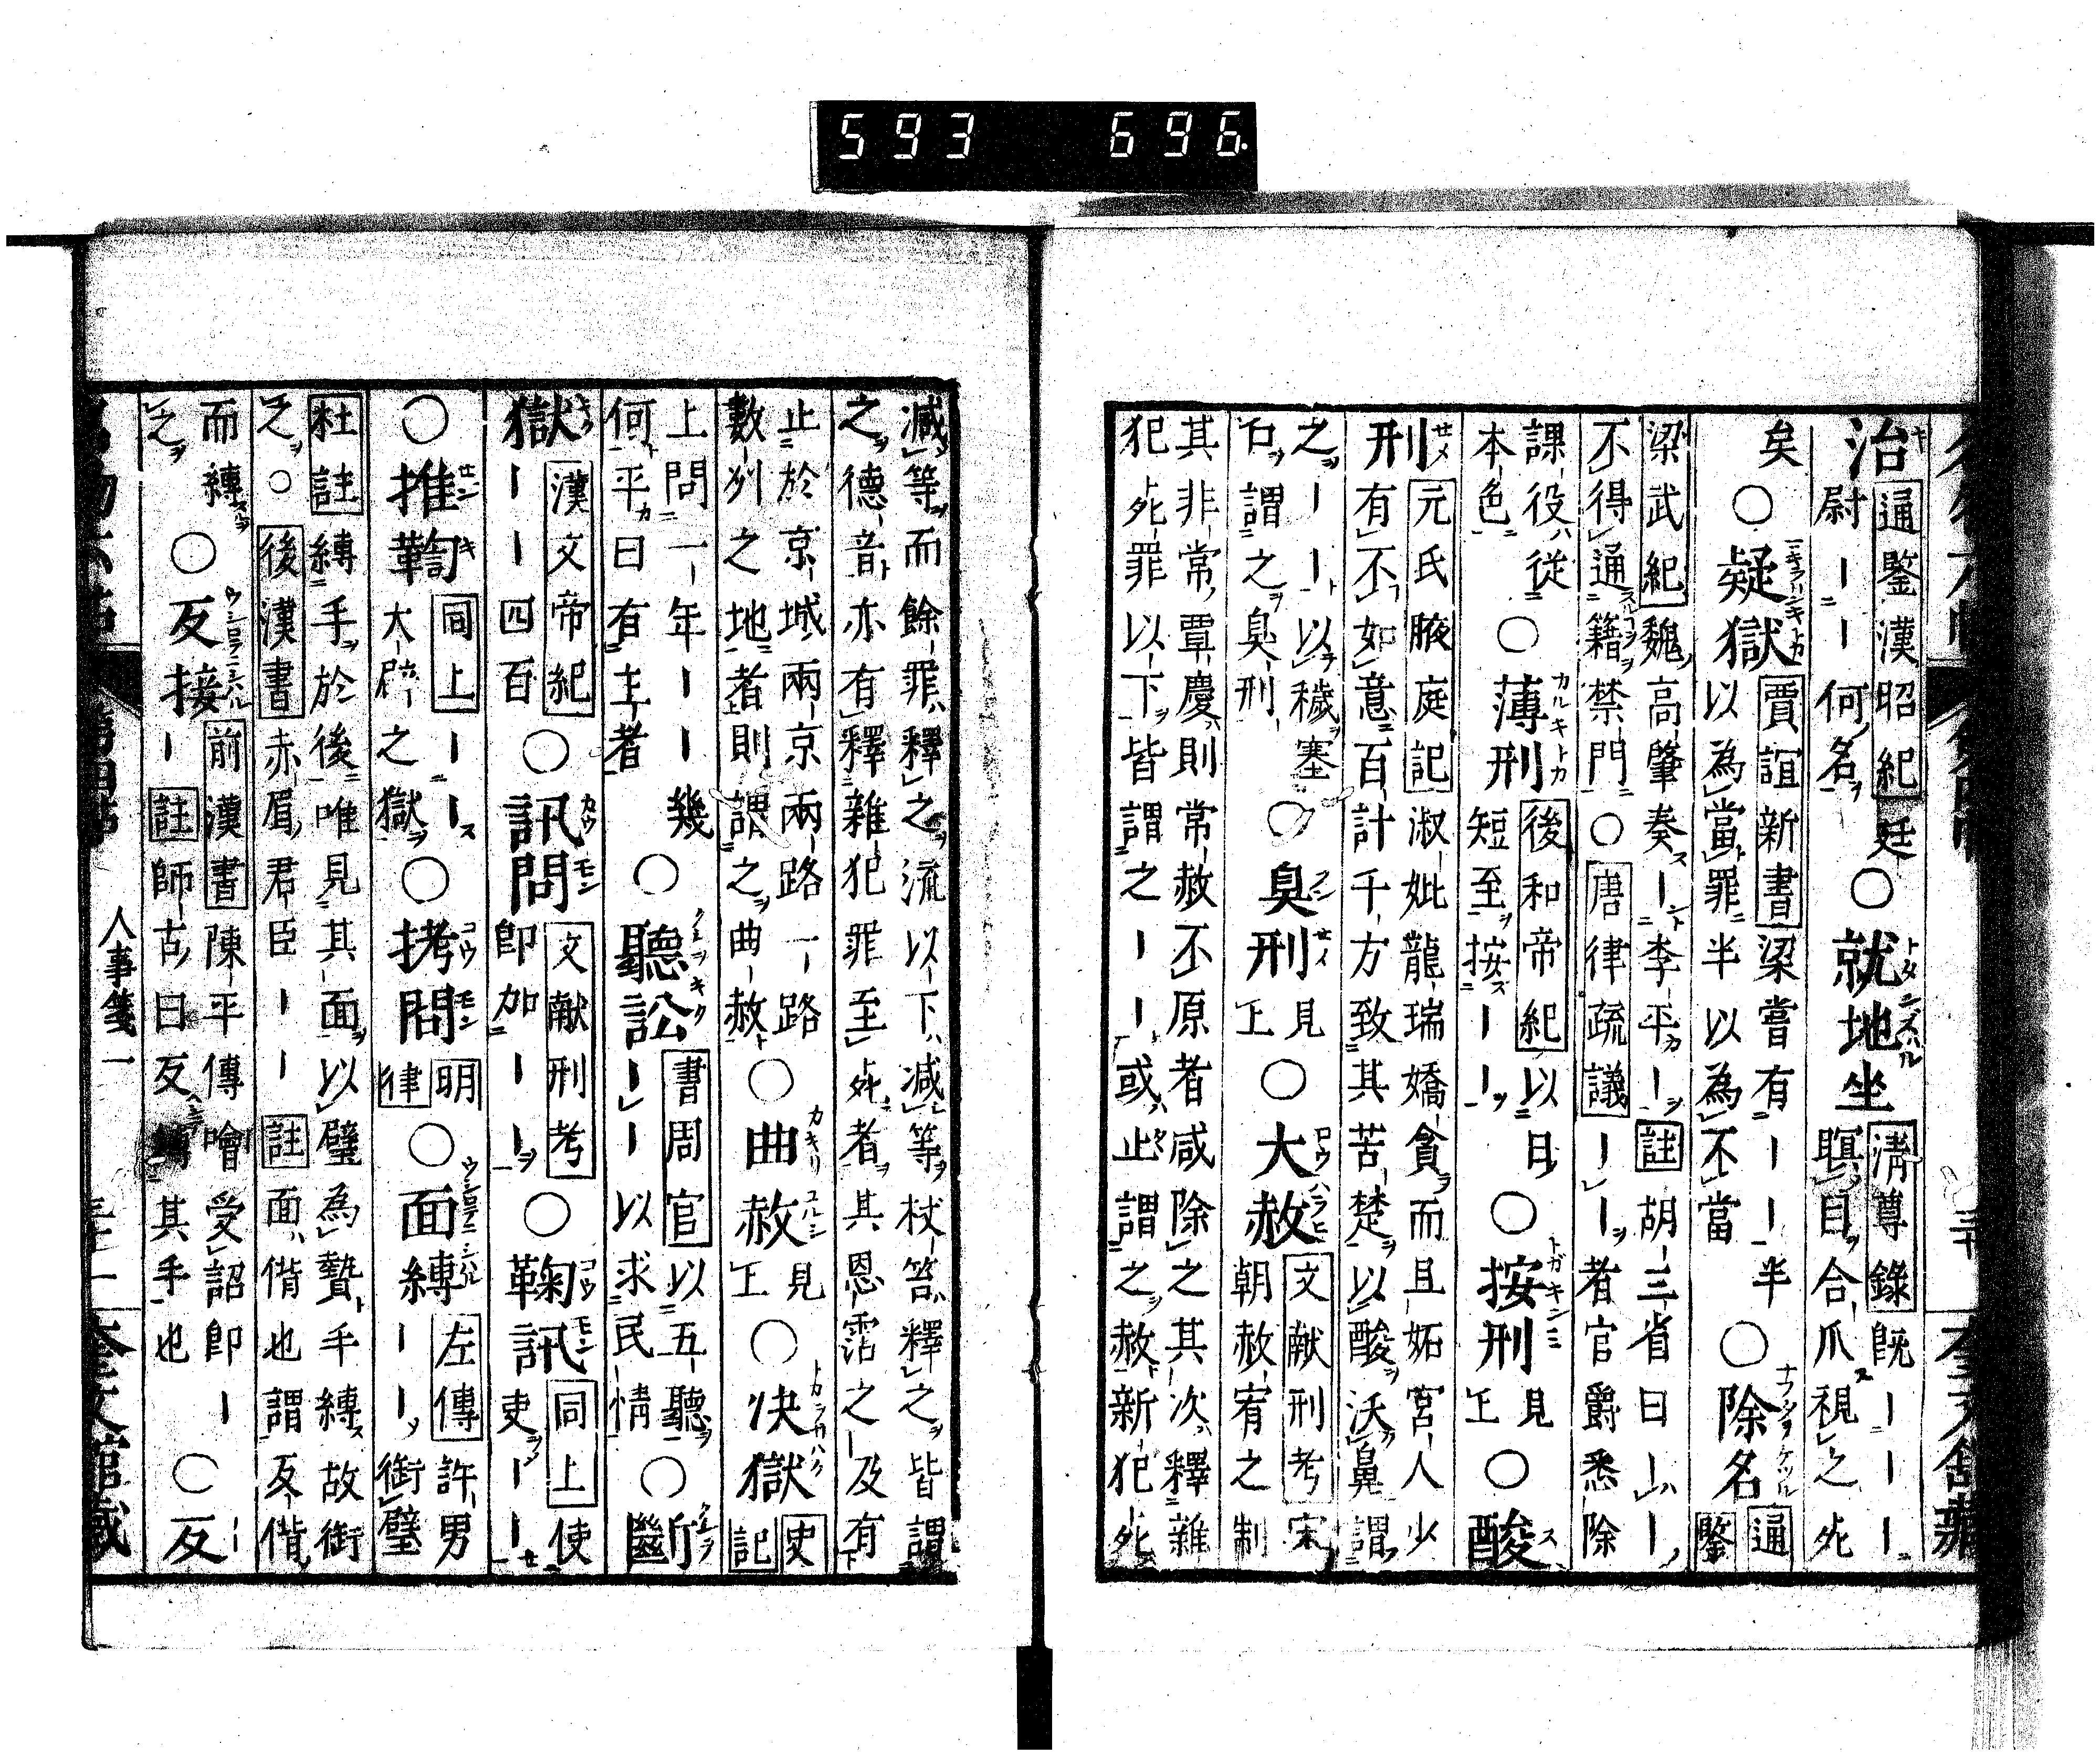 治 通鑒漢昭紀廷尉ーー何名 ○就地坐 清尊錄既ーーー瞑目合爪視之死
矣 ○疑獄 賈誼新書梁嘗有ーー半以為當罪半以為不當 ○除名 通鑒
梁武紀魏高肇奏ー李平ー註胡三省曰ーー不得通籍禁門○唐律疏議ーー者官爵悉除
課役從本色 ○薄刑 後和帝紀以日短至按ーー ○按刑 見上 ○酸
刑 元氏腋庭記淑妣龍瑞嬌貪而且妬宮人少有不如意百計千方致其苦楚以酸沃鼻謂
之ーー以穢塞口謂之臭刑 ○臭刑 見上 ○大赦 文献刑考宋朝赦宥之制
其非常覃慶則常赦不原者咸除之其次釋雜犯死罪以下皆謂之ーー或止謂之赦新犯死
減等而餘罪釋之流以下減等杖笞釋之皆謂之德音亦有釋雜犯罪至死者其恩霑之ー及有
止於京城兩京兩路一路數州之地者則謂之曲赦 ○曲赦 見上 ○决獄 史記
上問一年ーー幾何平曰有主者 ○聽訟 書周官以五聽ーー以求民情 ○斷
獄 漢文帝紀ーー四百 ○訊問 文献刑考即加ーー ○鞠訊 同上使吏ーー
○推鞫 同上ーー大辟之獄 ○拷問 明律 ○面縛 左傳許男ーー銜璧
杜註縛手於後唯見其面以璧為贄手縛故銜之○後漢書赤眉君臣ーー註面偝也謂反偝
而縛之 ○反接 前漢書陳平傳噲受詔即ーー註師古曰反縛其手也 ○反
人事箋一
奎文館藏